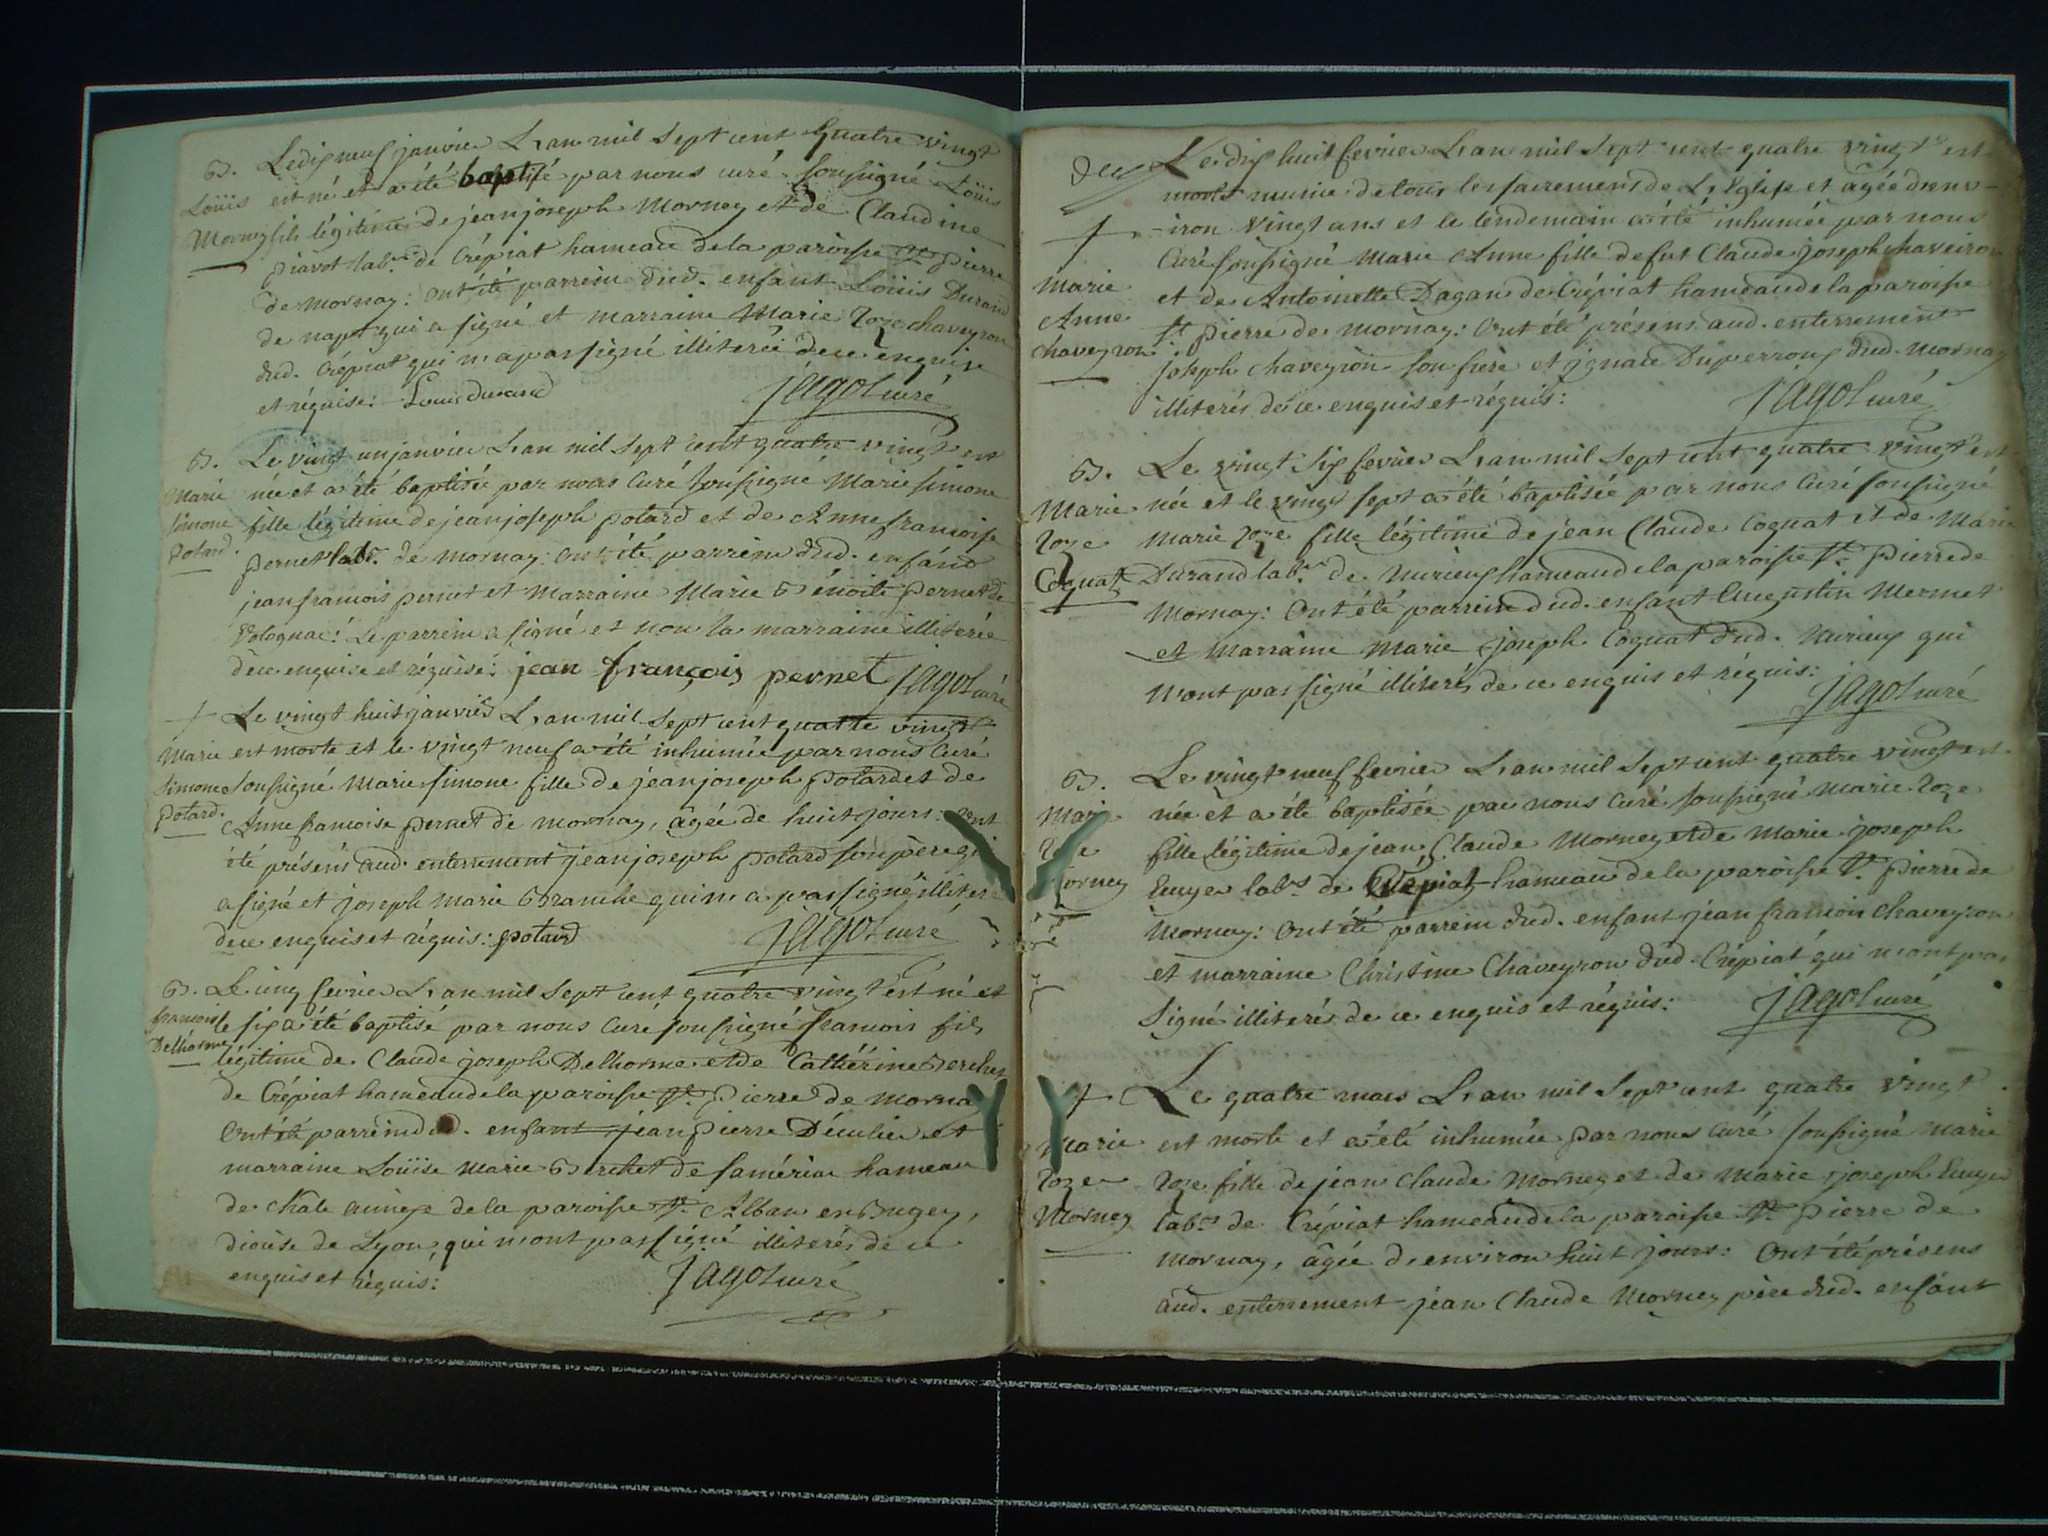 B. Le dix neuf janvier L'an mil sept cent quatre vingt
Loüis est né et a été baptisé par nous curé soussigné Loüis
Morney fils légitime de jean joseph Morney et de Claudine
piavot lab.rs de Crépiat hameau de la paroisse st pierre
de mornay: ont été parrein dud. enfant Loüis Durand
de napt qui a signé et marraine Marie roze chaveyron
dud. Crépiat qui n'a pas signé illiterée de ce enquise
et réquise: Louis durand jagot curé
B. Le vingt un janvier L'an mil sept cent quatre vingt est
Marie née et a été baptisée par nous Curé soussigné Marie simone
simone fille légitime de jean joseph potard et de Anne francoise
potard. pernet lab.rs de mornay: ont été parrein dud. enfánd
jean francois pernet et Marraine Marie Bénoite pernet de
Volognac: Le parrein a signé et non la marraine illiterée
de ce enquise et réquise: jean françois pernet jagot curé
+ Le vingt huit janvier L'an mil sept cent quatre vingt
Marie est morte et le vingt neuf a été inhumée par nous Curé
simone soussigné Marie simone fille de jean joseph potard et de
potard. Anne francoise pernet de mornay, âgée de huit jours: ont
été présens aud. enterrement jean joseph potard son père qui
a signé et joseph Marie Branche qui n'a pas signé illiteré
de ce enquis et réquis: potard jagot curé
B. Le cinq fevrier L'an mil sept cent quatre vingt est né et
francois le six a été baptisé par nous Curé soussigné francois fils
Delhorme légitime de Claude joseph Delhorme et de Cathérine Berchet
de Crépiat hameau de la paroisse st. pierre de morna
Ont été parrein dud. enfant jean pierre Déculier et
marraine Loüise Marie Berchet de samériar hameau
de Chale annexe de la paroisse st. Alban en Bugey,
diocése de Lyon, qui n'ont pas signé illiterés de ce
enquis et réquis: jagot curé
deux Le dix huit fevrier L'an mil sept cent quatre vingt est
morte munie de tous les sacremens de L'Eglise et âgée d'env-
+ -iron Vingt ans et le lendemain a été inhumée par nous
Curé soussigné Marie Anne fille de fut Claude joseph chaveiron
Marie et de Antoinette Dagan de Crépiat hameau de la paroisse
Anne st pierre de mornay: Ont été présens aud. enterrement
chaveyron joseph chaveyron son frère et ignace Duperroux dud. Mornay
illiterés de ce enquis et réquis: jagot curé
B. Le vingt six fevrier L'an mil sept cent quatre vingt est
Marie née et le vingt sept a été baptisée par nous Curé soussigné
roze Marie roze fille légitime de jean Claude Cognat et de Marie
Cognat Durand lab.rs de nurieux hameau de la paroisse st. pierre de
Mornay: Ont été parrein dud. enfant Augustin Mermet
et marraine Marie joseph Cognat dud. nurieux qui
n'ont pas signé illiterés de ce enquis et réquis:
jagot curé
B. Le vingt neuf fevrier L'an mil sept cent quatre vingt est
Marie née et a été baptisée par nous Curé soussigné Marie roze
fille légitime de jean Claude Morney et de Marie joseph
orney Euyer lab.rs de Crépiat hameau de la paroisse st. pierre de
Mornay: Ont été parrein dud. enfant jean francois Chaveyron
et marraine Christine Chaveyron dud Crépiat qui n'ont pas
signé illiterés de ce enquis et réquis: jagot curé
+ Le quatre mars L'an mil sept cent quatre vingt
Marie est morte et a été inhumée par nous Curé soussigné Marie
roze roze fille de jean Claude Morney et de Marie joseph Euyer
Morney lab.rs de Crépiat hameau de la paroisse st. pierre de
mornay, âgée d'environ huit jours: Ont été présens
aud. enterrement jean Claude Morney père dud. enfant